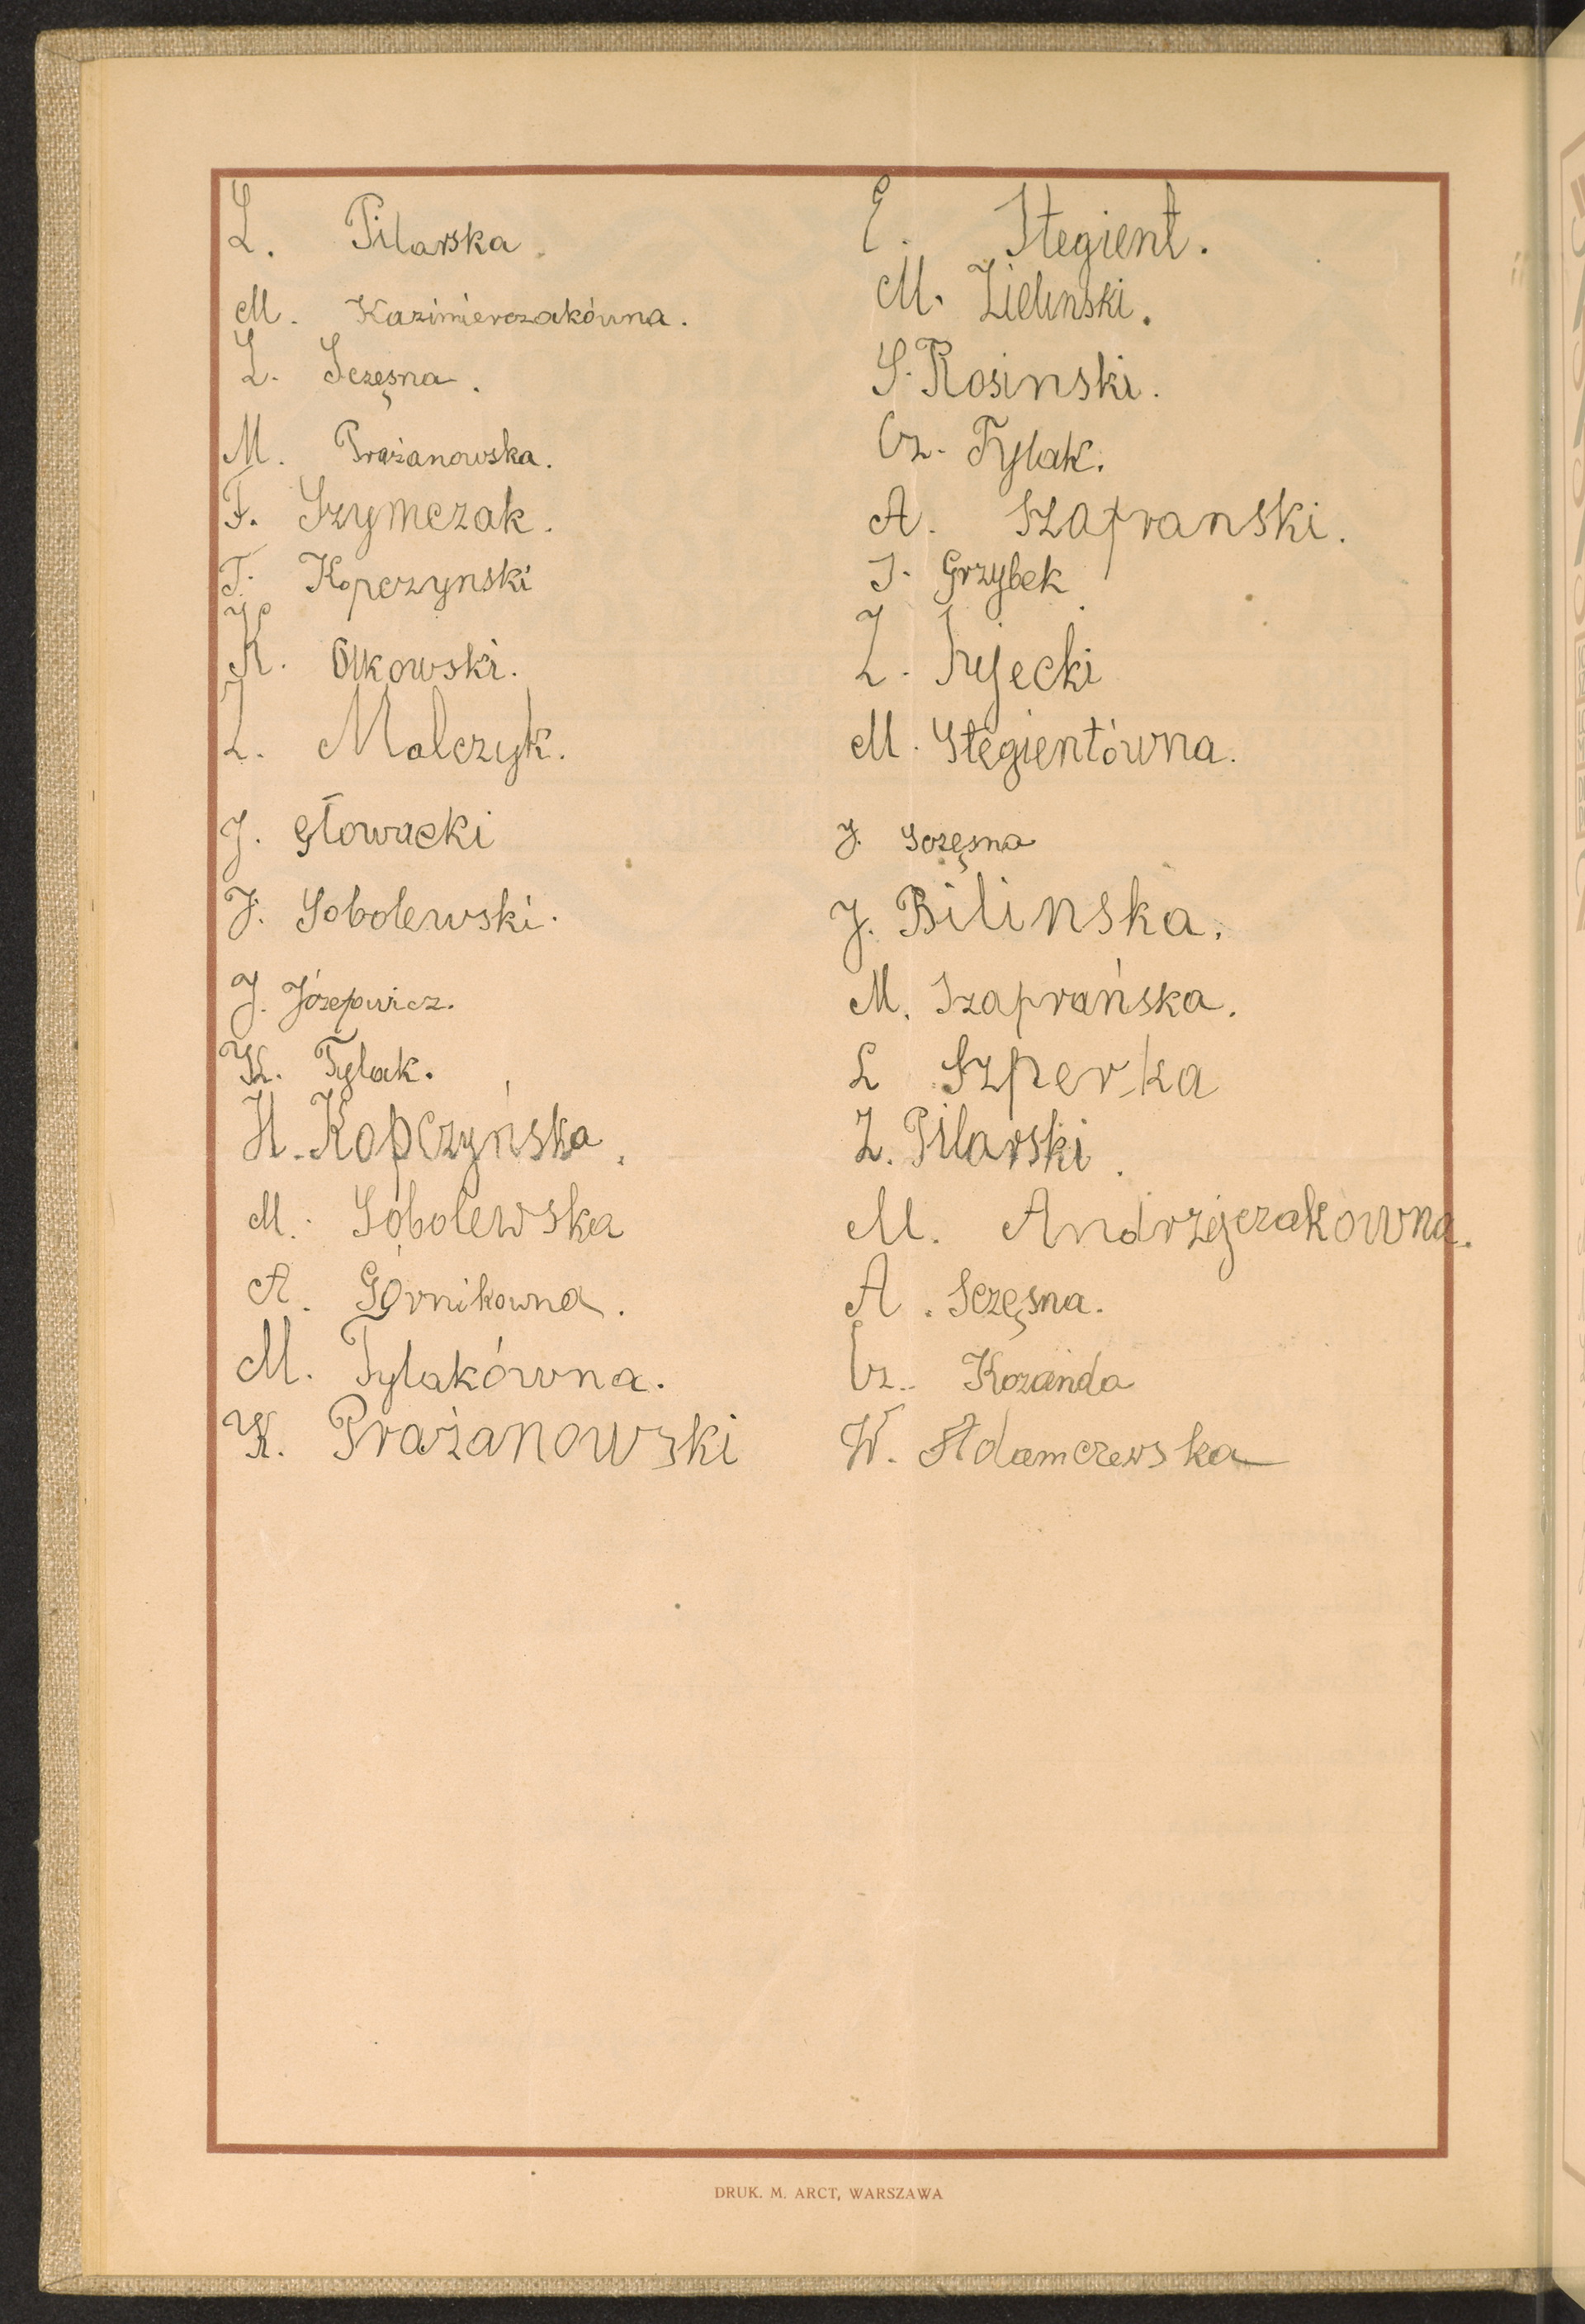 L. Pilarska
M. Kazimierczakówna.
L. Sczęsna.
M. Prażanowska.
F. Szymczak.
T. Kopczynski
K. Olkowski.
L. Malczyk.
J. Głowacki
J. Sobolewski.
J. Józefowicz.
K. Tylak.
H. Kopczyńska.
M. Sobolewska
A. Górnikowna.
M. Tylakówna.
K. Prażanowski
E. Stegient.
M. Zielinski.
S. Rosinski.
Cz. Tylak.
A. Szafranski.
J. Grzybek
Z. Tryjecki
M. Stegientówna.
J. Sczęsna
J. Bilinska.
M. Szafrańska.
L Szperka
Z. Pilarski.
M. Andrzejczakowna.
A. Sczęsna.
Cz. Kozanda
W. Adamczewska
DRUK. M. ARCT, WARSZAWA